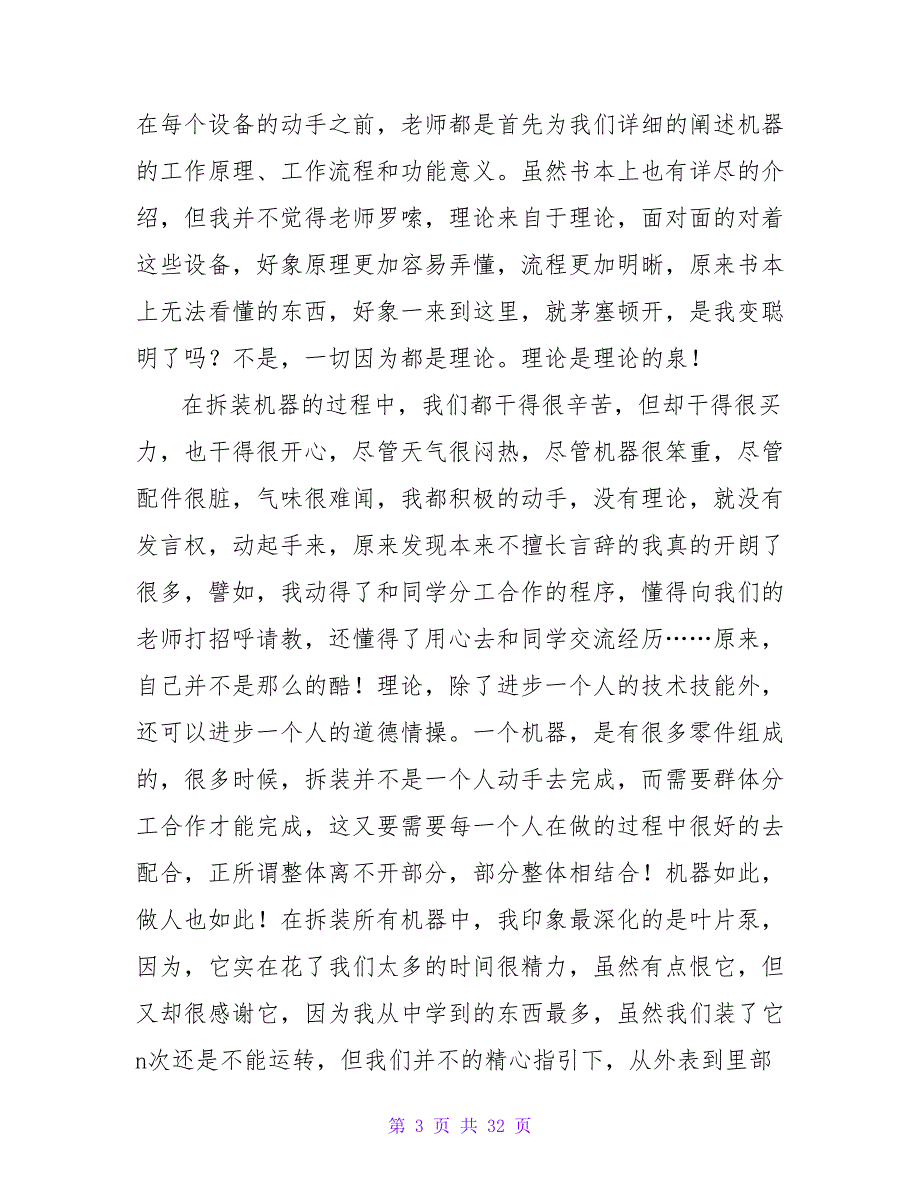 在每个设备的动手之前，老师都是首先为我们详细的阐述机器
的工作原理、工作流程和功能意义。虽然书本上也有详尽的介
绍，但我并不觉得老师罗嗦，理论来自于理论，面对面的对着
这些设备，好象原理更加容易弄懂，流程更加明晰，原来书本
上无法看懂的东西，好象一来到这里，就茅塞顿开，是我变聪
明了吗？不是，一切因为都是理论。理论是理论的泉！
在拆装机器的过程中，我们都干得很辛苦，但却干得很买
力，也干得很开心，尽管天气很闷热，尽管机器很笨重，尽管
配件很脏，气味很难闻，我都积极的动手，没有理论，就没有
发言权，动起手来，原来发现本来不擅长言辞的我真的开朗了
很多，譬如，我动得了和同学分工合作的程序，懂得向我们的
老师打招呼请教，还懂得了用心去和同学交流经历……原来，
自己并不是那么的酷！理论，除了进步一个人的技术技能外，
还可以进步一个人的道德情操。一个机器，是有很多零件组成
的，很多时候，拆装并不是一个人动手去完成，而需要群体分
工合作才能完成，这又要需要每一个人在做的过程中很好的去
配合，正所谓整体离不开部分，部分整体相结合！机器如此，
做人也如此！在拆装所有机器中，我印象最深化的是叶片泵，
因为，它实在花了我们太多的时间很精力，虽然有点恨它，但
又却很感谢它，因为我从中学到的东西最多，虽然我们装了它
n次还是不能运转，但我们并不的精心指引下，从外表到里部
第 3 页 共 32 页